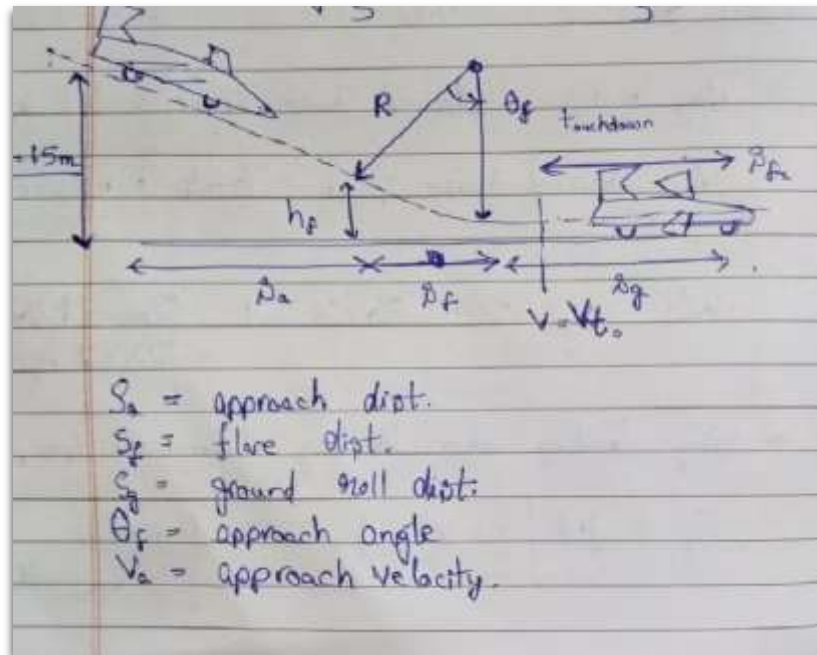 = 15m
R
θf
touchdown
hf
Sa
Sf
Sg
V = Vt.
Sa = approach dist.
Sf = flare dist.
Sg = ground roll dist.
θf = approach angle
Va = approach velocity.